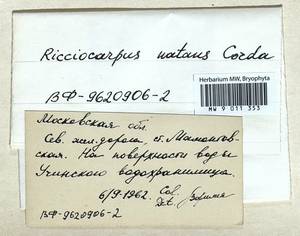 Ricciocarpus natans Corda
Herbarium MW, Bryophyta
MW 9 011 353
ВФ-9620906-2
Московская обл.
Сев. жел. дорога, ст. Мамонтов-
ская. На поверхности воды
Учинского водохранилища.
6/9-1962. Col.
Det.
ВФ-9620906-2